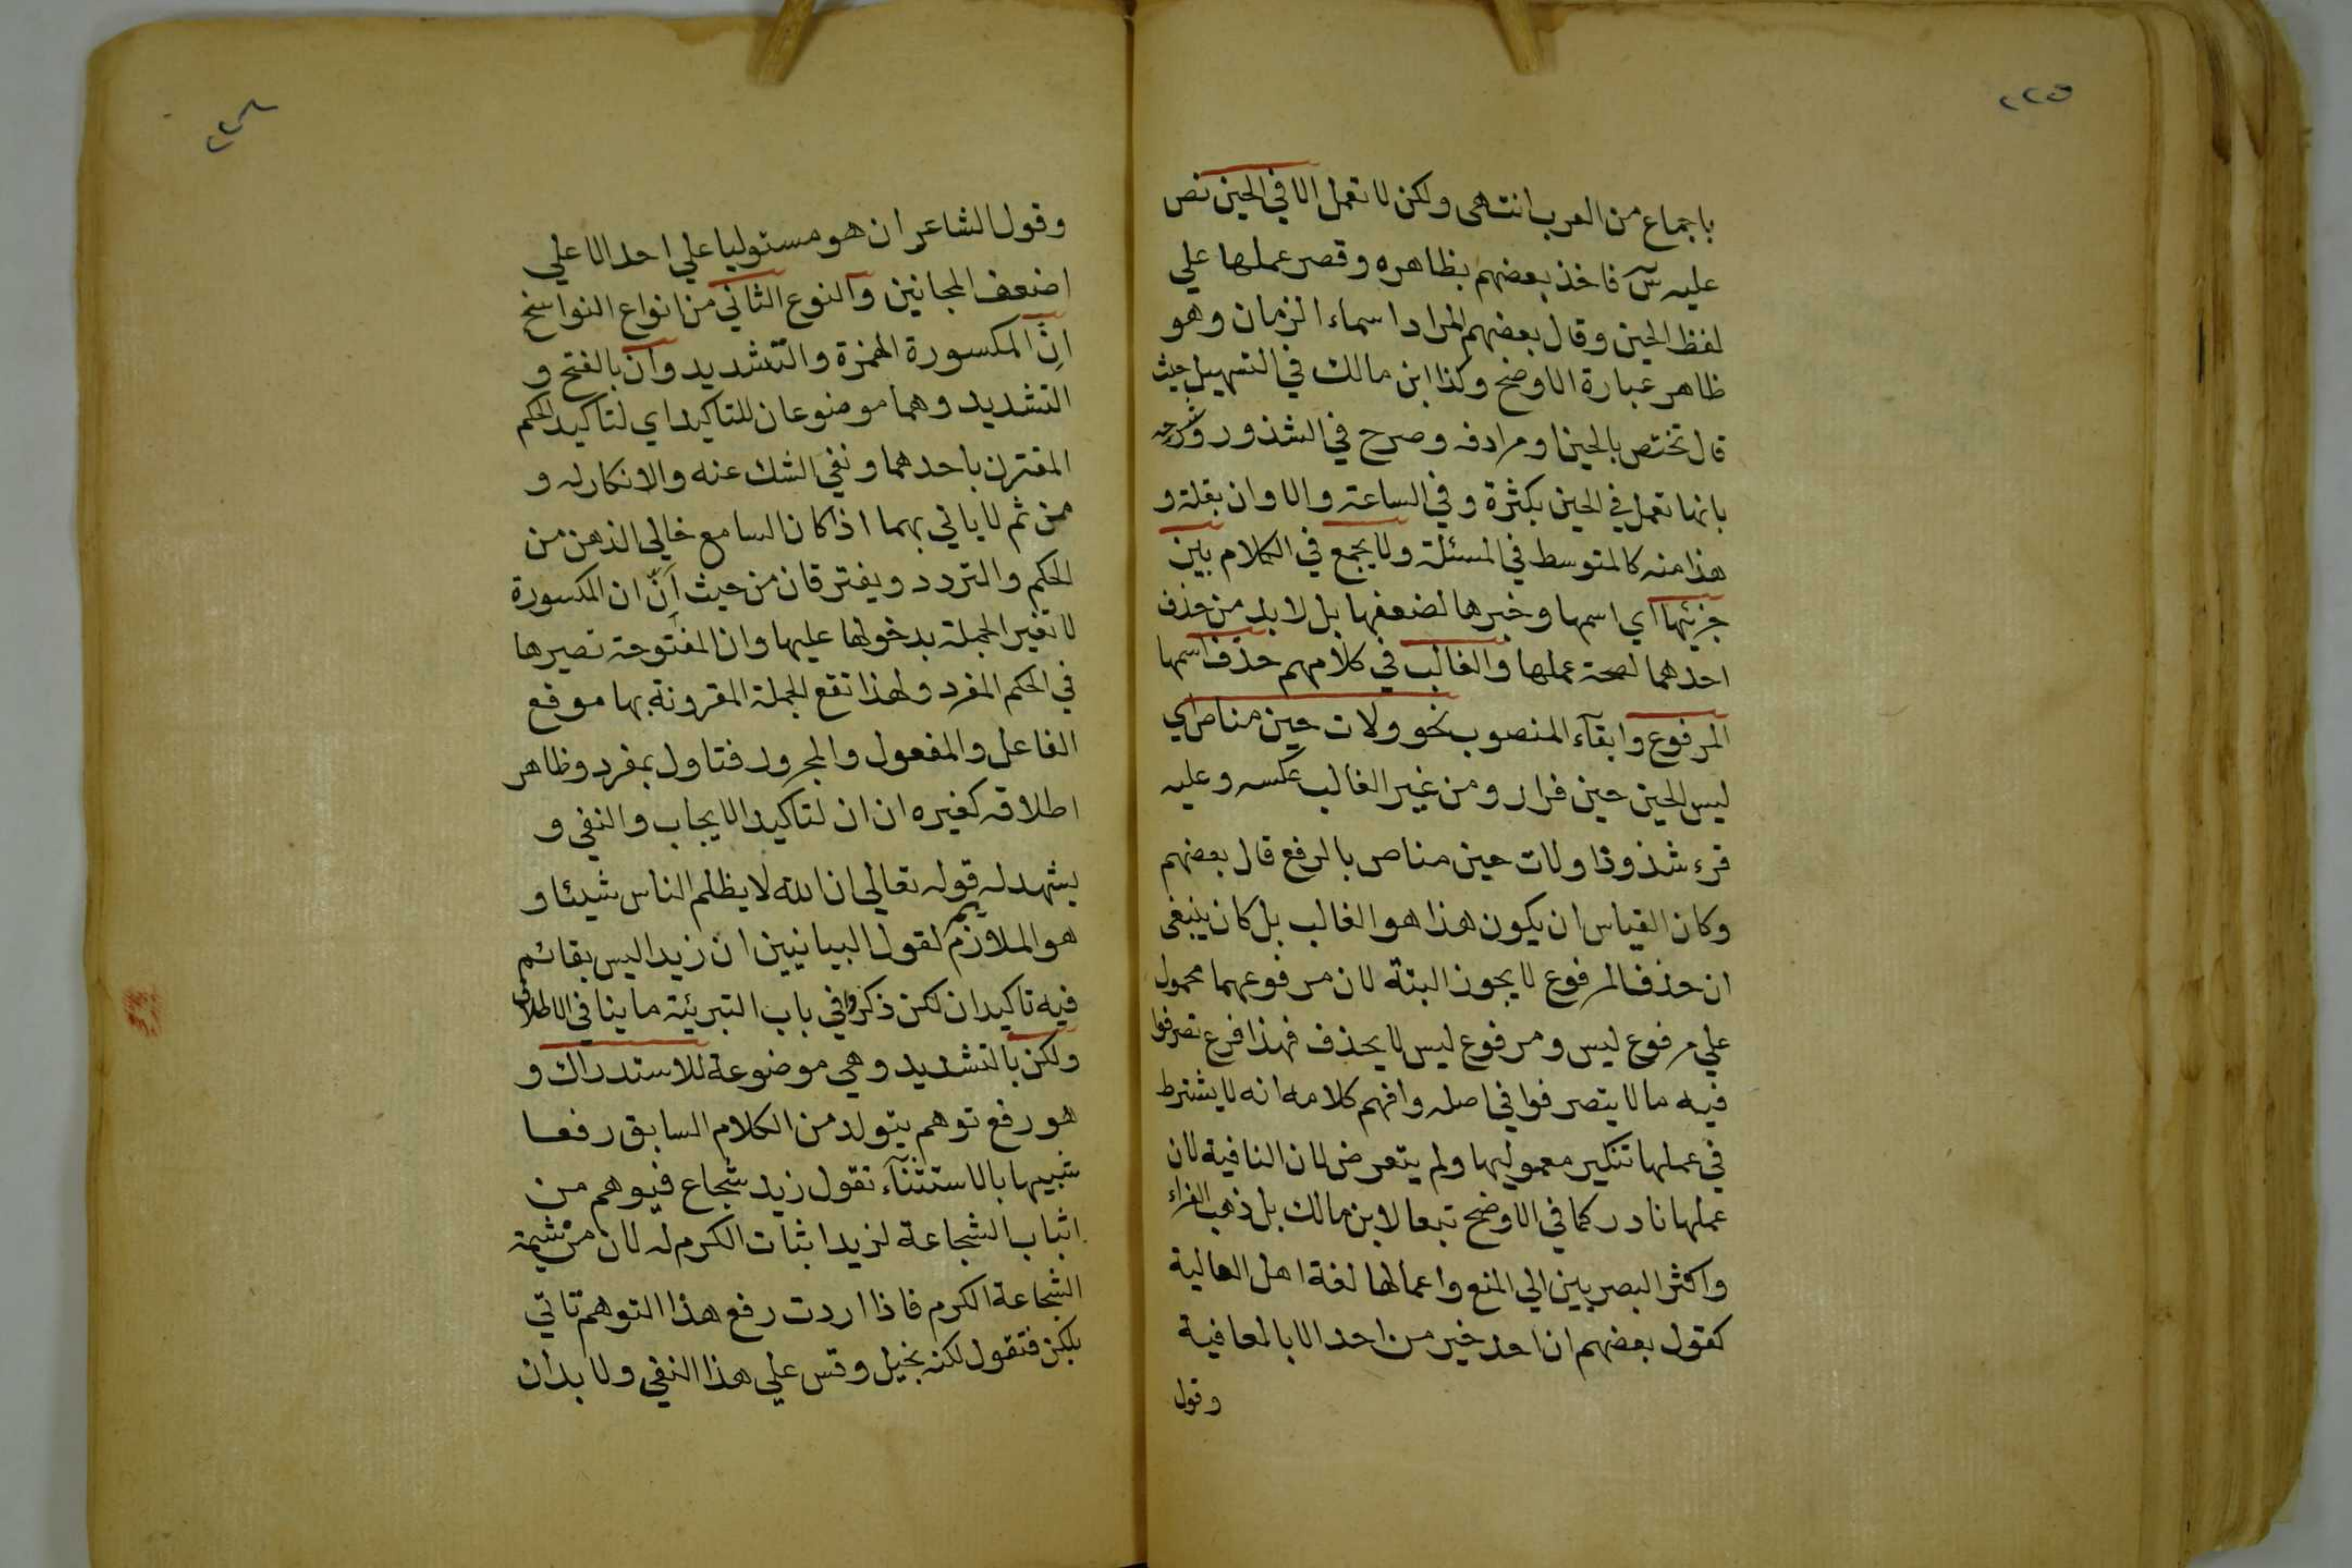 ٢٢٥
باجماع من العرب انتهى ولكن لا تعمل الا في الحين نص
عليه س فاخذ بعضهم بظاهره وقصر عملها علي
لفظ الحين وقال بعضهم المراد اسماء الزمان وهو
ظاهر عبارة الاوضح وكذا ابن مالك في التسهيل حيث
قال تختص بالحين او مرادفه وصرح في الشذور وشرحه
بانها تعمل في الحين بكثرة وفي الساعة والاوان بقلة و
هذا منه كالمتوسط في المسئلة ولا يجمع في الكلام بين
جزئيها اي اسمها وخبرها لضعفها بل لابد من حذف
احدهما لصحة عملها والغالب في كلامهم حذف اسمها
المرفوع وابقآء المنصوب نحو ولات حين مناص اي
ليس الحين حين فرار ومن غير الغالب عكسه وعليه
قرء شذوذا ولات حين مناص بالرفع قال بعضهم
وكان القياس ان يكون هذا هو الغالب بل كان ينبغي
ان حذف المرفوع لا يجوز البتة لان مرفوعهما محمول
علي مرفوع ليس ومرفوع ليس لا يحذف فهذا فرع تصرفوا
فيه ما لا يتصرفوا في اصله وافهم كلامه انه لا يشترط
في عملها تنكير معموليها ولم يتعرض لان النافية لان
عملها نادر كما في الاوضح تبعا لابن مالك بل ذهب الفراء
واكثر البصريين الي المنع واعمالها لغة اهل العالية
كقول بعضهم ان احد خير من احد الا بالعافية
وقول
وقول الشاعر ان هو مستوليا علي احد الا علي
اضعف المجانين والنوع الثاني من انواع النواسخ
اِنَّ المكسورة الهمزة والتشديد وان بالفتح و
التشديد وهما موضوعان للتاكيد اي لتاكيد الحكم
المقترن باحدهما ونفي الشك عنه والانكار له و
من ثم لا ياتي بهما اذا كان السامع خالي الذهن من
الحكم والتردد ويفترقان من حيث اَنّ ان المكسورة
لا تغير الجملة بدخولها عليها وان المفتوحة تصيرها
في الحكم المفرد ولهذا تقع الجملة المقرونة بها موقع
الفاعل والمفعول والمجرور فتاول بمفرد وظاهر
اطلاقه كغيره ان ان لتاكيد الايجاب والنفي و
يشهد له قوله تعالي ان الله لا يظلم الناس شيئا و
هو الملازم لقول البيانيين ان زيدا ليس بقائم
فيه تاكيدان لكن ذكروا في باب التبرئة ما ينافي الاطلاق
ولكن بالتشديد وهي موضوعة للاستدراك و
هو رفع توهم يتولد من الكلام السابق رفعا
شبيها بالاستثنآء تقول زيد شجاع فيوهم من
اثباب الشجاعة لزيد اثبات الكرم له لان من شيمة
الشجاعة الكرم فاذا اردت رفع هذا التوهم تاتي
بلكن فتقول لكنه بخيل وقس علي هذا النفي ولا بد ان